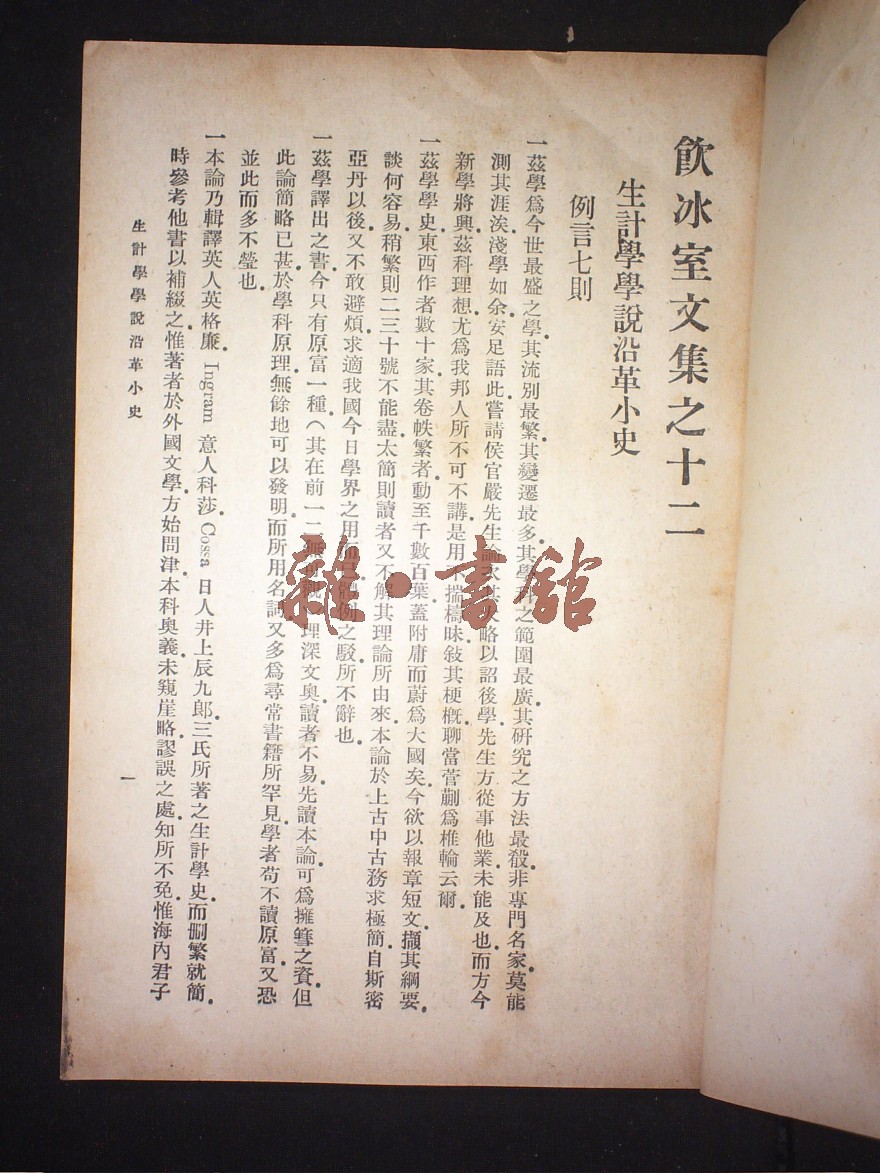 飲冰室文集之十二
生計學學說沿革小史
例言七則
一茲學爲今世最盛之學其流別最繁其變遷最多其學科之範圍最廣其研究之方法最殽非專門名家莫能
測其涯涘淺學如余安足語此嘗請侯官嚴先生論次其大略以詔後學先生方從事他業未能及也而方今
新學將興茲科理想尤爲我邦人所不可不講是用不揣檮昧敍其梗概聊當菅蒯爲椎輪云爾
一茲學學史東西作者數十家其卷帙繁者動至千數百葉蓋附庸而蔚爲大國矣今欲以報章短文擷其綱要
談何容易稍繁則二三十號不能盡太簡則讀者又不解其理論所由來本論於上古中古務求極簡自斯密
亞丹以後又不敢避煩求適我國今日學界之用而已體例之駁所不辭也
一茲學譯出之書今只有原富一種（其在前一二無可觀）理深文奧讀者不易先讀本論可爲擁篲之資但
此論簡略已甚於學科原理無餘地可以發明而所用名詞又多爲尋常書籍所罕見學者苟不讀原富又恐
並此而多不瑩也
一本論乃輯譯英人英格廉 Ingram 意人科莎 Cossa 日人井上辰九郎三氏所著之生計學史而刪繁就簡
時參考他書以補綴之惟著者於外國文學方始問津本科奧義未窺崖略謬誤之處知所不免惟海內君子
生計學學說沿革小史
一
雜·書館